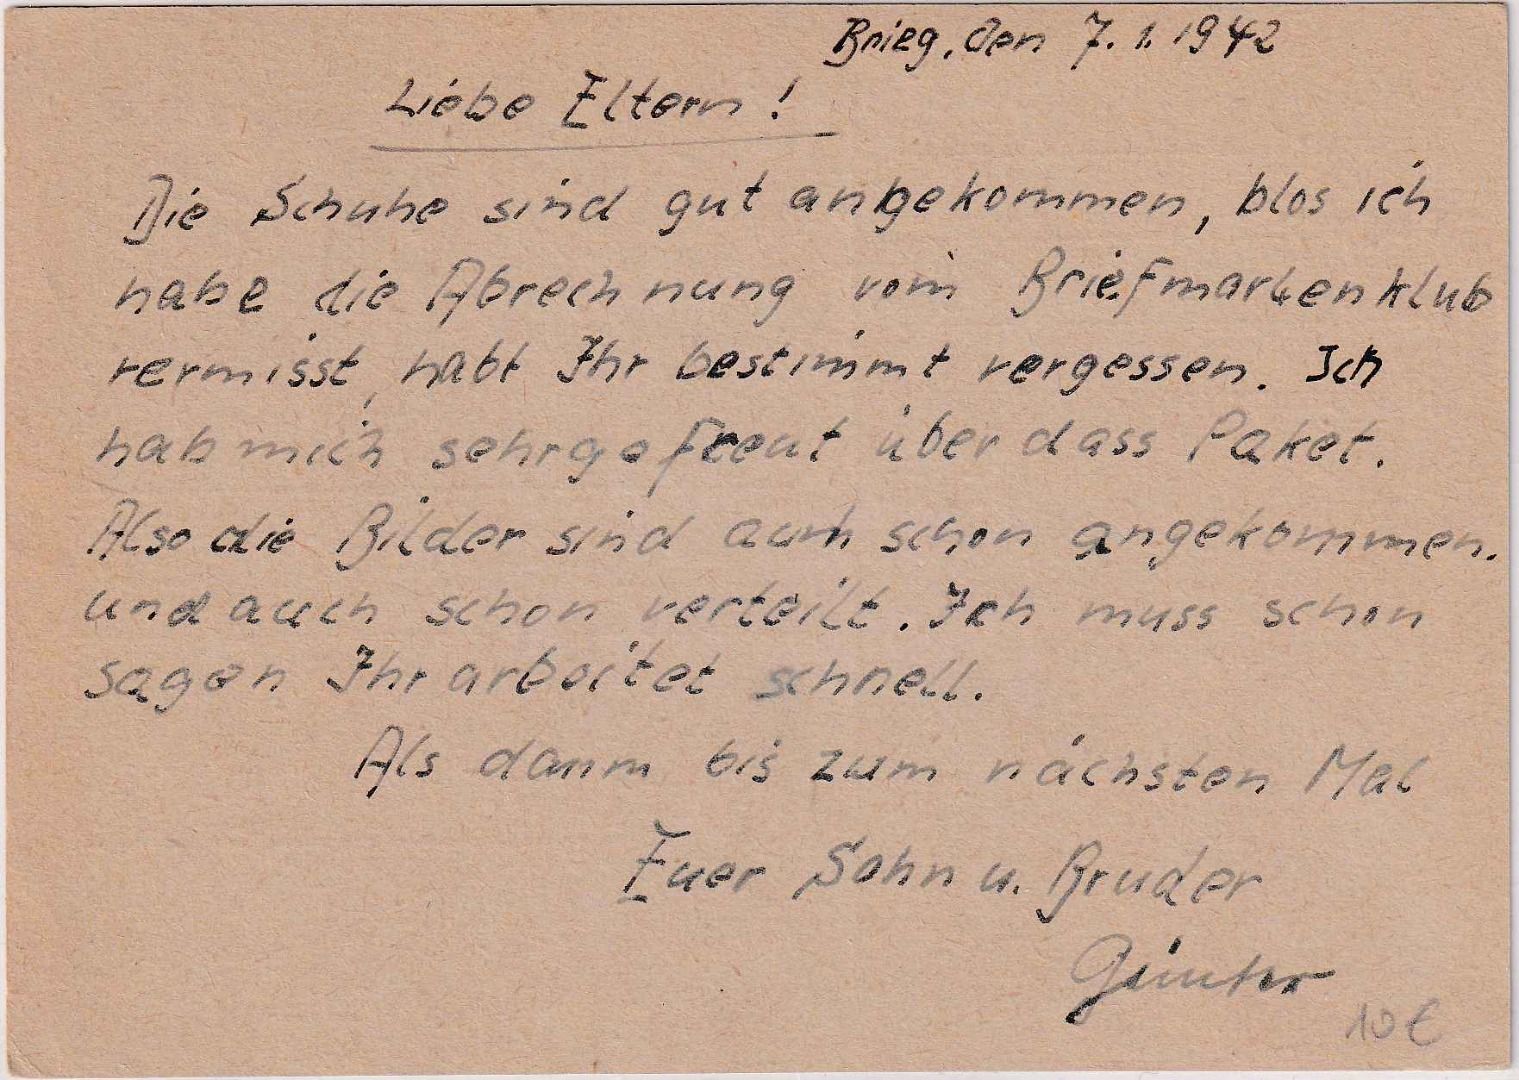 Brieg, den 7.1.1942
Liebe Eltern!
Die Schuhe sind gut angekommen, blos ich
habe die Abrechnung vom Briefmarkenklub
vermisst, habt Ihr bestimmt vergessen. Ich
hab mich sehr gefreut über dass Paket.
Also die Bilder sind auch schon angekommen.
und auch schon verteilt. Ich muss schon
sagen Ihr arbeitet schnell.
Als dann bis zum nächsten Mal
Euer Sohn u. Bruder
Günter
10 €